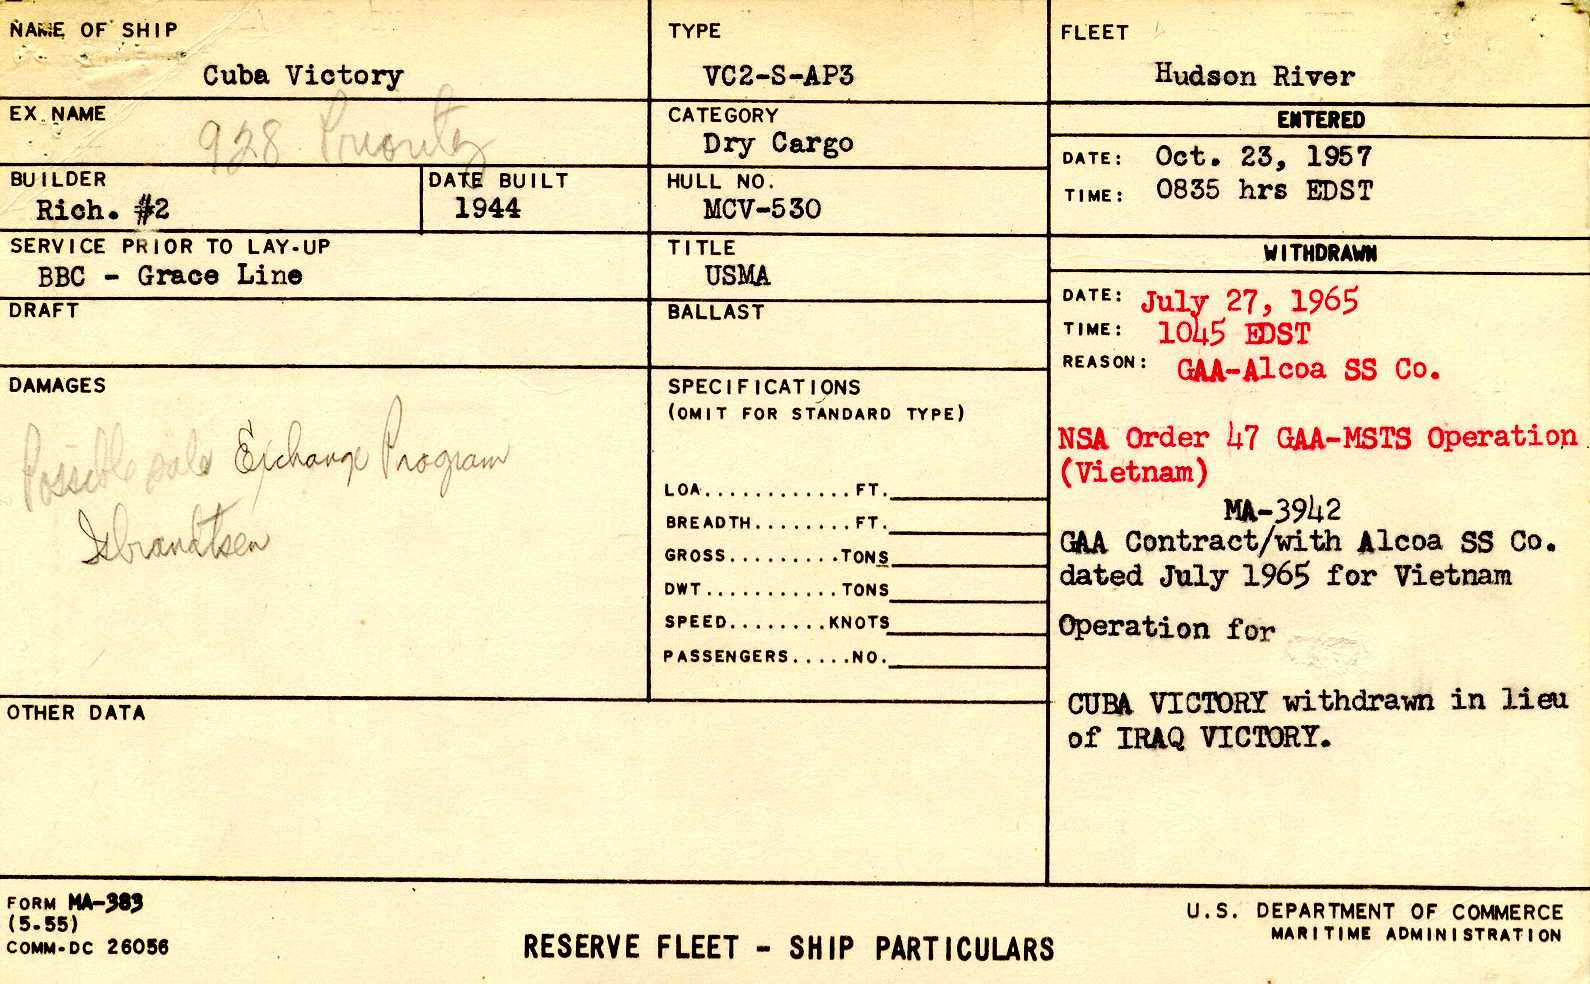 NAME OF SHIP
Cuba Victory
EX. NAME
928 Priority
BUILDER
Rich. #2
DATE BUILT
1944
SERVICE PRIOR TO LAY-UP
BBC - Grace Line
DRAFT
DAMAGES
Possible sale Exchange Program
Isbrandtsen
TYPE
VC2-S-AP3
CATEGORY
Dry Cargo
HULL NO.
MCV-530
TITLE
USMA
BALLAST
SPECIFICATIONS
(OMIT FOR STANDARD TYPE)
LOA............FT.
BREADTH........FT.
GROSS.........TONS
DWT...........TONS
SPEED........KNOTS
PASSENGERS.....NO.
OTHER DATA
FLEET
Hudson River
ENTERED
DATE: Oct. 23, 1957
TIME: 0835 hrs EDST
WITHDRAWN
DATE: July 27, 1965
TIME: 1045 EDST
REASON: GAA-Alcoa SS Co.
NSA Order 47 GAA-MSTS Operation
(Vietnam)
MA-3942
GAA Contract/with Alcoa SS Co.
dated July 1965 for Vietnam
Operation for
CUBA VICTORY withdrawn in lieu
of IRAQ VICTORY.
FORM MA-383
(5-55)
COMM-DC 26056
RESERVE FLEET - SHIP PARTICULARS
U.S. DEPARTMENT OF COMMERCE
MARITIME ADMINISTRATION